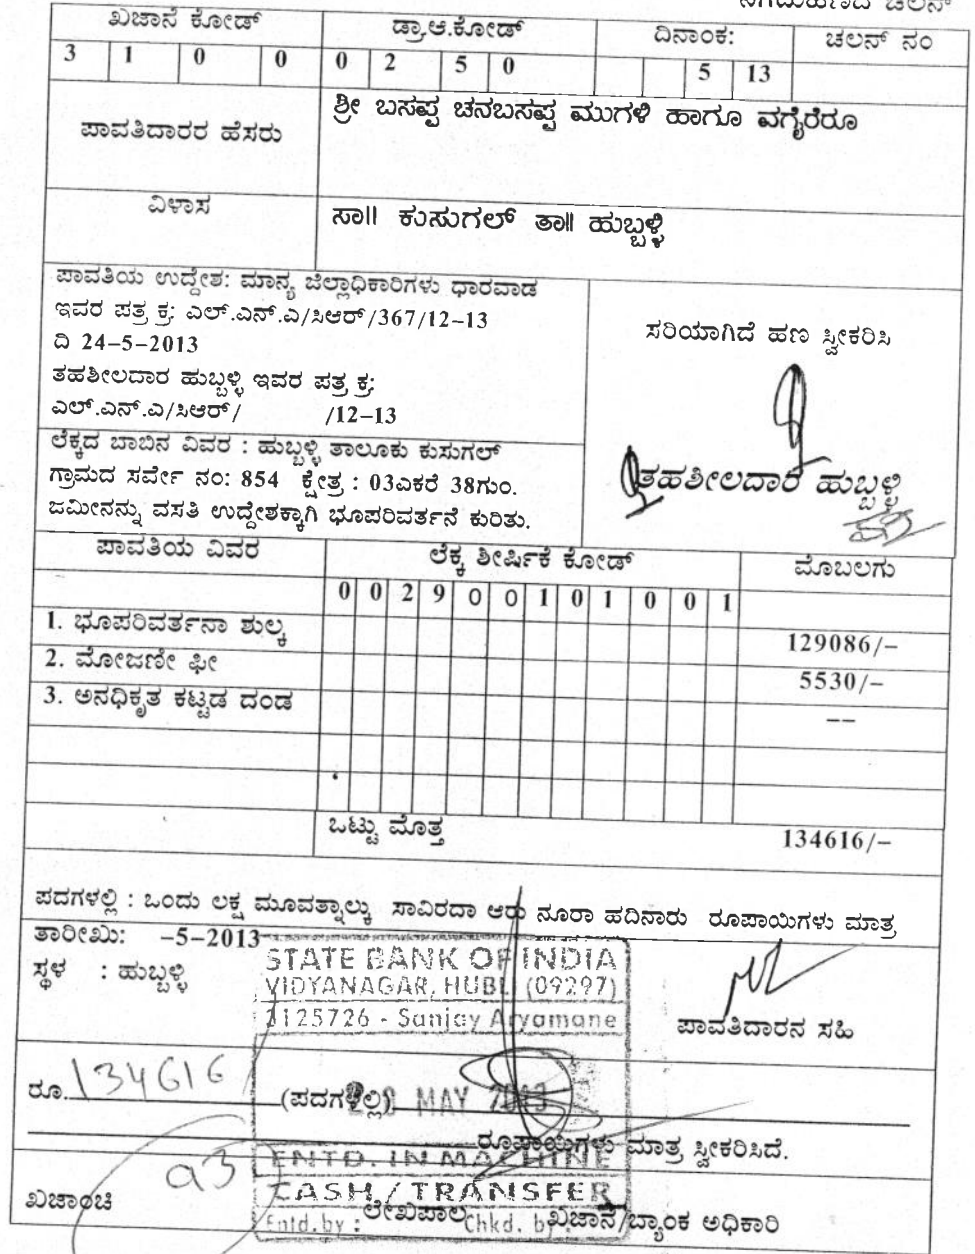 ಚಲನ್
ಖಜಾನೆ ಕೋಡ್ ಡ್ರಾ.ಆ.ಕೋಡ್ ದಿನಾಂಕ: ಚಲನ್ ನಂ
3 1 0 0 0 2 5 0 5 13
ಪಾವತಿದಾರರ ಹೆಸರು ಶ್ರೀ ಬಸಪ್ಪ ಚನಬಸಪ್ಪ ಮುಗಳಿ ಹಾಗೂ ವಗೈರೆರೂ
ವಿಳಾಸ ಸಾ॥ ಕುಸುಗಲ್ ತಾ॥ ಹುಬ್ಬಳ್ಳಿ
ಪಾವತಿಯ ಉದ್ದೇಶ: ಮಾನ್ಯ ಜಿಲ್ಲಾಧಿಕಾರಿಗಳು ಧಾರವಾಡ
ಇವರ ಪತ್ರ ಕ್ರ: ಎಲ್.ಎನ್.ಎ/ಸಿಆರ್/367/12-13
ದಿ 24-5-2013
ತಹಶೀಲದಾರ ಹುಬ್ಬಳ್ಳಿ ಇವರ ಪತ್ರ ಕ್ರ:
ಎಲ್.ಎನ್.ಎ/ಸಿಆರ್/ /12-13
ಸರಿಯಾಗಿದೆ ಹಣ ಸ್ವೀಕರಿಸಿ
ತಹಶೀಲದಾರ ಹುಬ್ಬಳ್ಳಿ
ಲೆಕ್ಕದ ಬಾಬಿನ ವಿವರ : ಹುಬ್ಬಳ್ಳಿ ತಾಲೂಕು ಕುಸುಗಲ್
ಗ್ರಾಮದ ಸರ್ವೇ ನಂ: 854 ಕ್ಷೇತ್ರ : 03ಎಕರೆ 38ಗುಂ.
ಜಮೀನನ್ನು ವಸತಿ ಉದ್ದೇಶಕ್ಕಾಗಿ ಭೂಪರಿವರ್ತನೆ ಕುರಿತು.
ಪಾವತಿಯ ವಿವರ ಲೆಕ್ಕ ಶೀರ್ಷಿಕೆ ಕೋಡ್ ಮೊಬಲಗು
0 0 2 9 0 0 1 0 1 0 0 1
1. ಭೂಪರಿವರ್ತನಾ ಶುಲ್ಕ 129086/-
2. ಮೋಜಣೀ ಫೀ 5530/-
3. ಅನಧಿಕೃತ ಕಟ್ಟಡ ದಂಡ --
ಒಟ್ಟು ಮೊತ್ತ 134616/-
ಪದಗಳಲ್ಲಿ : ಒಂದು ಲಕ್ಷ ಮೂವತ್ನಾಲ್ಕು ಸಾವಿರದಾ ಆರು ನೂರಾ ಹದಿನಾರು ರೂಪಾಯಿಗಳು ಮಾತ್ರ
ತಾರೀಖು: -5-2013
ಸ್ಥಳ : ಹುಬ್ಬಳ್ಳಿ
STATE BANK OF INDIA
VIDYANAGAR, HUBLI (09297)
3125726 - Sanjay Aryamane
ಪಾವತಿದಾರನ ಸಹಿ
ರೂ. 134616 (ಪದಗಳಲ್ಲಿ)
MAY 2013
ರೂಪಾಯಿಗಳು ಮಾತ್ರ ಸ್ವೀಕರಿಸಿದೆ.
ENTD. IN MACHINE
CASH / TRANSFER
Entd.by : Chkd. by
ಖಜಾಂಚಿ ಲೇಖಪಾಲ ಖಜಾನೆ/ಬ್ಯಾಂಕ ಅಧಿಕಾರಿ